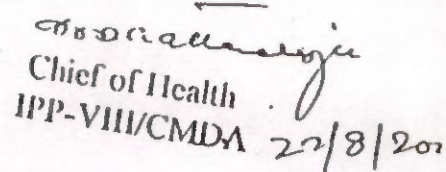 Chief of Health
IPP-VIII/CMDA 22/8/200